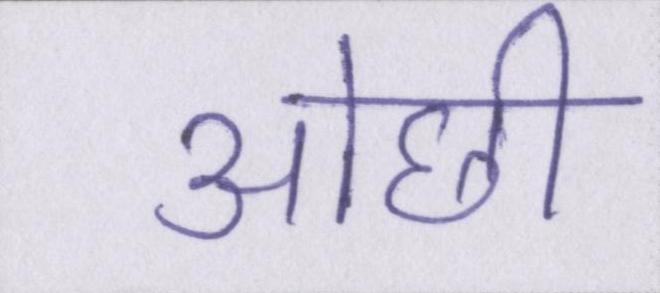 ओछी